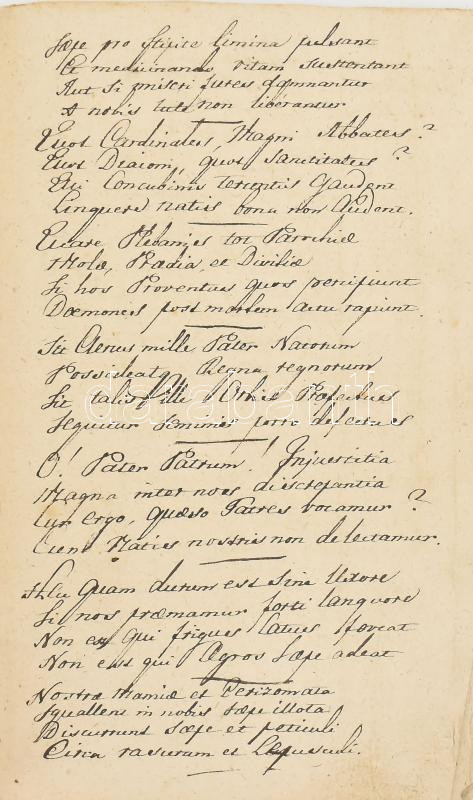 Sæpe pro stipite limina pulsant
Et medicinando vitam sustentant
Aut si miseri fures damnantur
A nobis tute non liberantur
Quot Cardinales, Magni Abbates?
Quot Diaconi, quot Sanctitates?
Qui Concubinis tercentis Gaudent
Linquere Natis bona non Audent.
Quare Plebanjes tot Parochiæ
Molæ, Prædia, et Divitiæ
Si hos Proventus quos percipiunt
Dæmones post mortem actu rapiunt.
Sit Clerus mille Pater Natorum
Possideat Regna regnorum
Sit talis Ille Orbis Præfectus
Sequitur Seminis porro defectus
O! Pater Patrum! Injustitia
Magna inter nos discrepantia
Cur ergo, quæso Patres vocamur?
Cum Natis nostris non delectamur.
Heu Quam durum est Sine Uxore
Si nos præmamur forti languore
Non est qui frigus latus foveat
Non est qui Aegros sæpe adeat
Nostræ mamiæ et Perizomata
Squallent in nobis sæpe illota
Discurrunt sæpe et peticuli
Circa rasuram et
darabanth